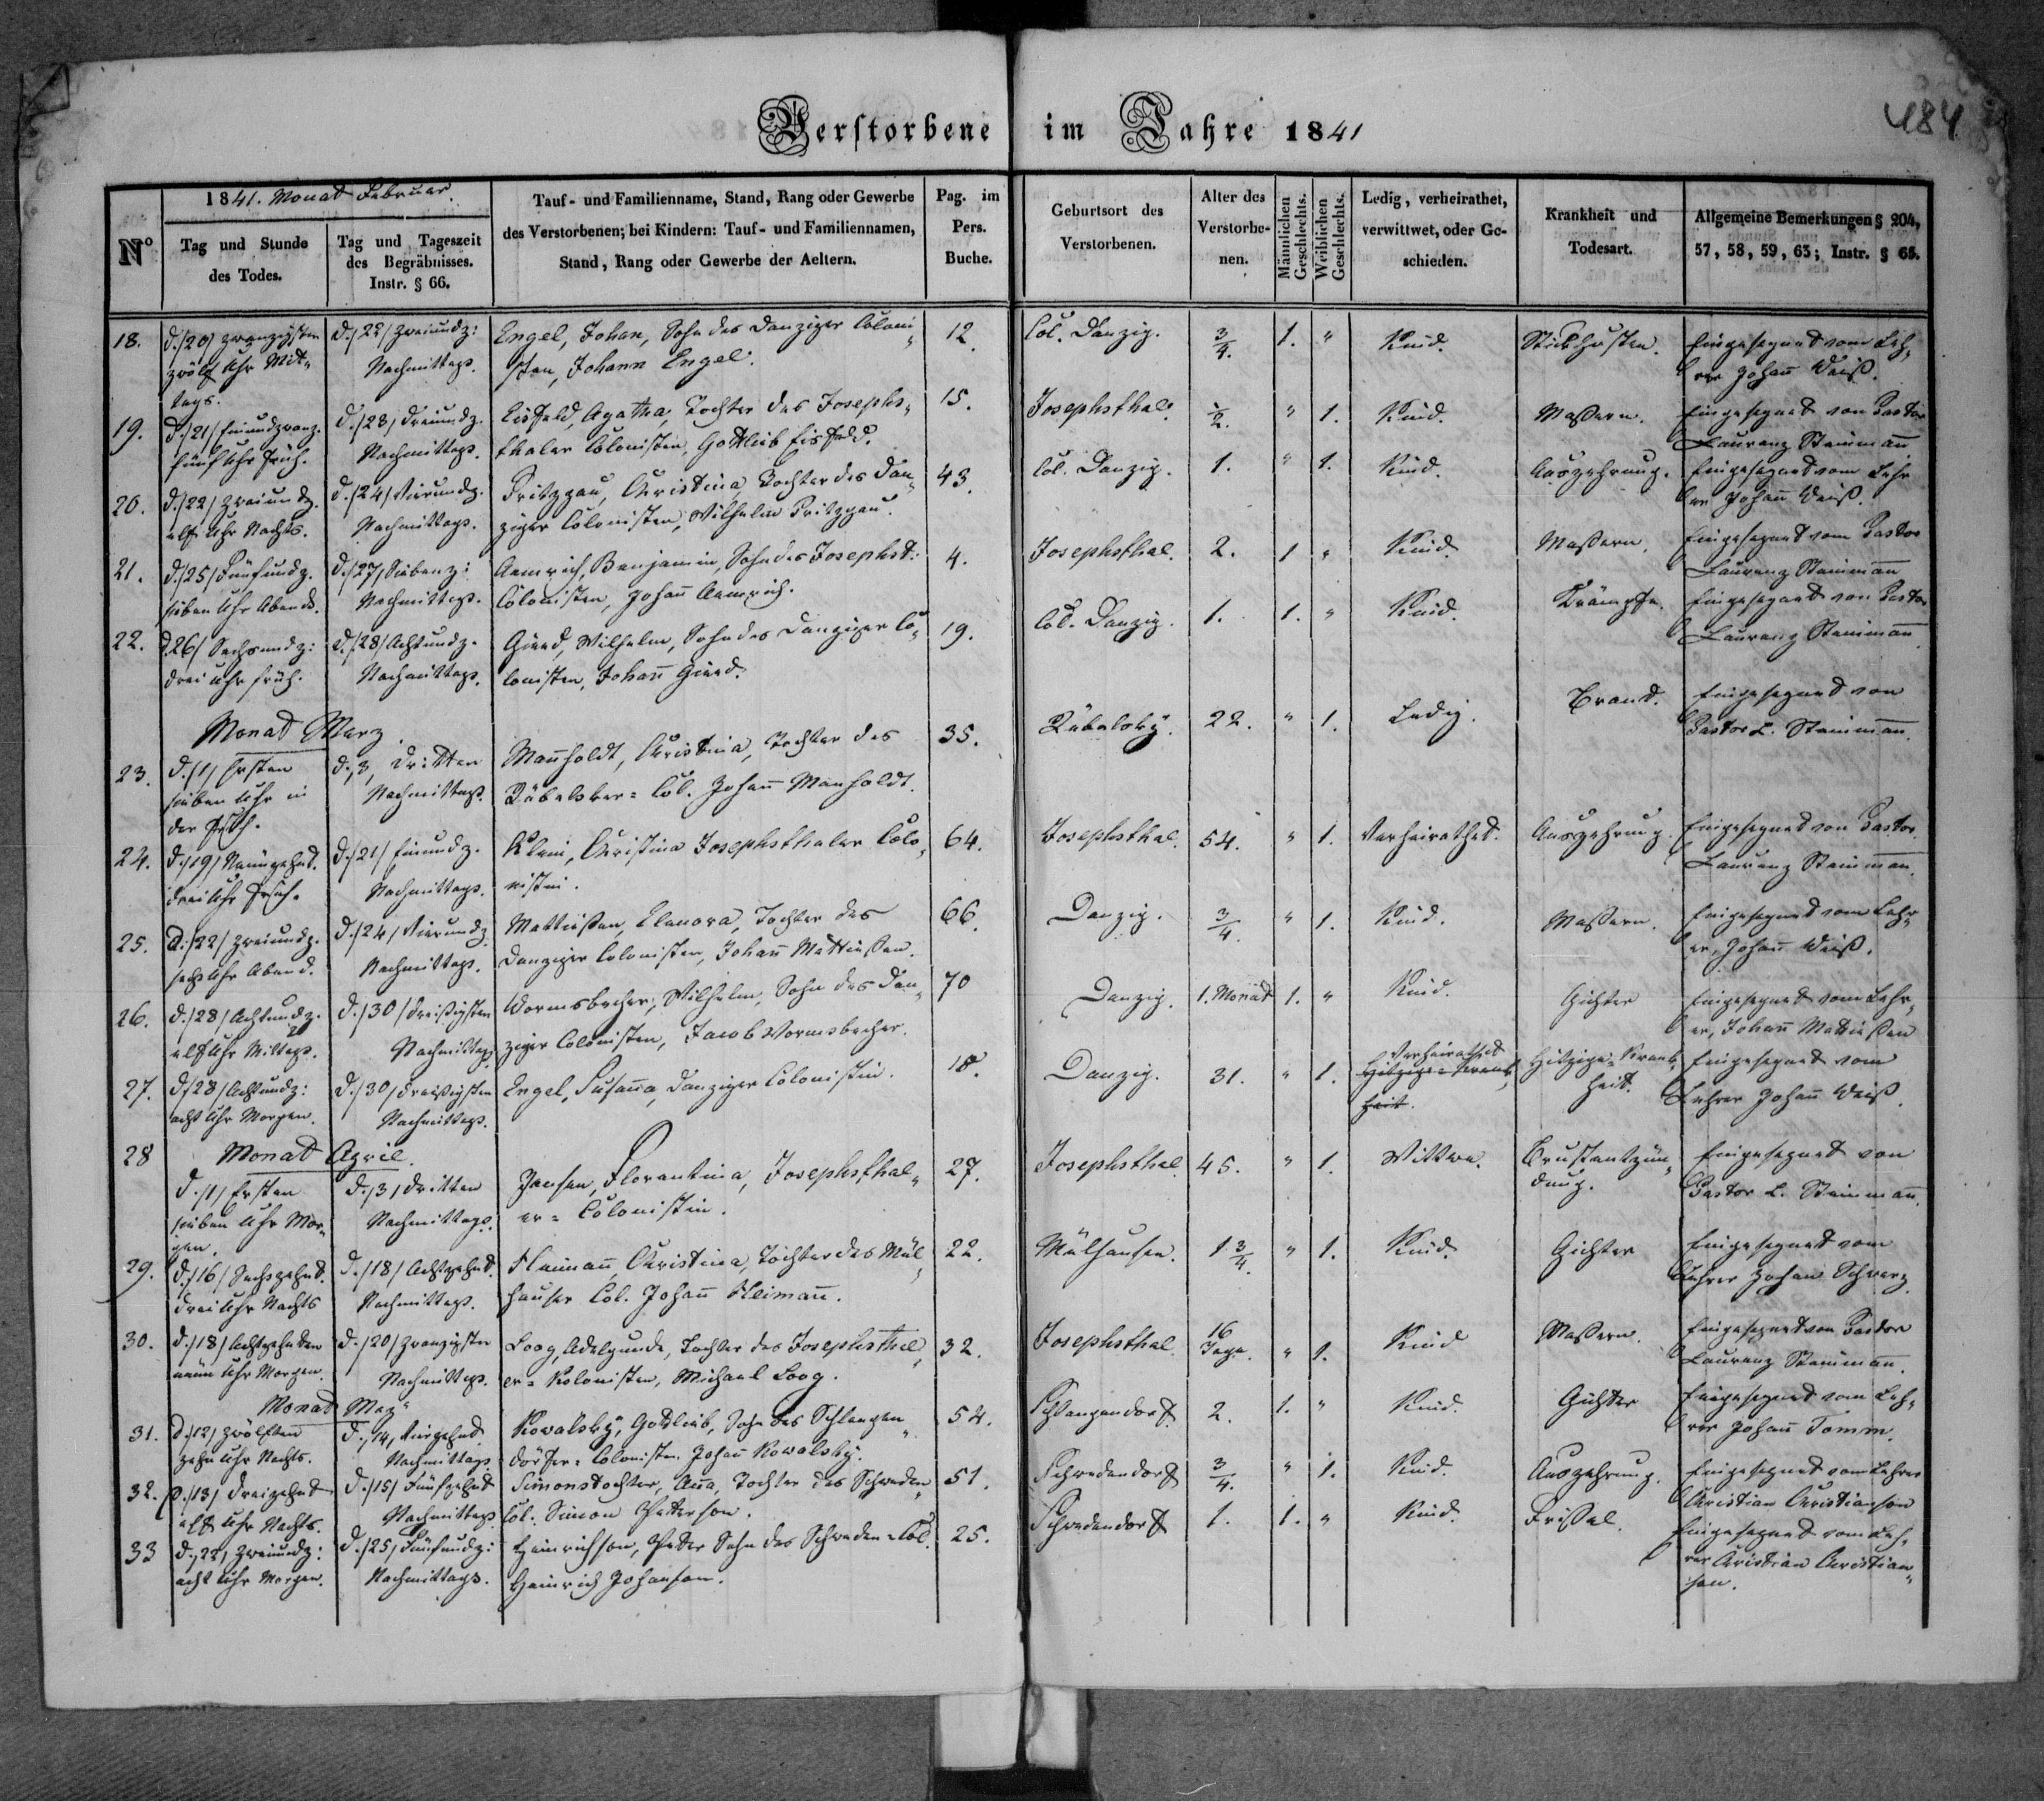 Verstorbene im Jahre 1841
184
1841. Monat Februar.
No
Tag und Stunde
des Todes.
Tag und Tageszeit
des Begräbnisses.
Instr. § 66.
Tauf- und Familienname, Stand, Rang oder Gewerbe
des Verstorbenen; bei Kindern: Tauf- und Familiennamen,
Stand, Rang oder Gewerbe der Aeltern.
Pag. im
Pers.
Buche.
Geburtsort des
Verstorbenen.
Alter des
Verstorbe-
nen.
Männlichen
Geschlechts.
Weiblichen
Geschlechts.
Ledig, verheirathet,
verwittwet, oder Ge-
schieden.
Krankheit und
Todesart.
Allgemeine Bemerkungen § 204,
57, 58, 59, 63; Instr. § 65.
18. d./20/ zwanzigsten d./22/ zweiundz: Engel, Johan, Sohn des Danziger Coloni„ 12. Col. Danzig. 3/4. 1. „ Kind. Stickhusten. Eingesegnet vom Leh„
zwölf Uhr Mit„ Nachmittags. sten, Johann Engel. rer Johan̄ Weiß.
tags.
19. d./21/ Einundzwanz. d./23/ Dreiundz. Eisfeld, Agatha, Tochter des Josephs„ 15. Josephsthal. 1/2. „ 1. Kind. Maßern. Eingesegnet von Pastor
fünf Uhr Früh. Nachmittags. thaler Colonisten, Gottlieb Eisfeld. Laurenz Steinman̄
20. d./22/ Zweiundz. d./24/ Vierundz. Fritzgau, Christina, Tochter des Dan„ 43. Col. Danzig. 1. „ 1. Kind. Auszehrung. Eingesegnet vom Lehr
elf Uhr Nachts. Nachmittags. ziger Colonisten, Wilhelm Fritzgau. er Johan̄ Weiß.
21. d./25/ Fünfundz. d./27/ Siebenz: Aemrich, Benjamin, Sohn des Josephst: 4. Josephsthal. 2. 1 „ Kind. Maßern. Eingesegnet vom Pastor
sieben Uhr Abends. Nachmittags. Colonisten, Johan̄ Aemrich. Laurenz Steinman̄
22. d.26/ Sechsundz: d./28/ Achtundz. Gierd, Wilhelm, Sohn des Danziger Co„ 19. Col. Danzig. 1. 1. „ Kind. Krämpfe. Eingesegnet von Pastor
drei Uhr früh. Nachmittags. lonisten, Johan̄ Gierd. Laurenz Steinman̄.
Monat Merz.
23. d./1/ Ersten d./3/ Dritten Manholdt, Christina, Tochter des 35. Räbalsky. 22. „ 1. Ledig. Brand. Eingesegnet von
sieben Uhr in Nachmittags. Räbelsker= Col. Johan̄ Manholdt. Pastor L. Steinman̄.
der Früh.
24. d./19/ Neunzehnt. d./21/ Einundz. Klein, Christina Josephsthaler Colo„ 64. Josephsthal. 54. „ 1. Verheirathet. Auszehrung. Eingesegnet von Pastor
drei Uhr Früh. Nachmittags. nistin. Laurenz Steinman̄.
25. d./22/ Zweiundz. d./24/ Vierundz. Mattießen, Elenora, Tochter des 66. Danzig. 3/4. „ 1. Kind. Maßern. Eingesegnet vom Lehr„
sechs Uhr Abend. Nachmittags. Danziger Colonisten, Johan̄ Mattießen. er, Johan̄ Weiß.
26. d./28/ Achtundz. d./30/ Dreißigsten Wormsbecher, Wilhelm, Sohn des Dan„ 70 Danzig. 1. Monat 1. „ Kind. Gichter Eingesegnet vom Lehr„
elf Uhr Mittags. Nachmittags. ziger Colonisten, Jacob Wormsbecher. er, Johan̄ Mattießen
27. d./28/ Achtundz: d./30/ Dreißigsten Engel, Susan̄a, Danziger Colonistin. 18. Danzig. 31. „ 1. Verheirathet Hitzige=Krank„ Eingesegnet vom
acht Uhr Morgen. Nachmittags. Hitzige=Krank„ heit. heit. Lehrer Johan̄ Weiß.
28 Monat April.
d./1/ Ersten d./3/ dritten Jansen, Florentina, Josephsthal„ 27. Josephsthal 45. „ 1. Wittwe. Brustentzün„ Eingesegnet von
sieben Uhr Mor„ Nachmittags. er= Colonistin. dung. Pastor L. Steinman̄.
gen.
29. d./16/ Sechzehnt. d./18/ Achtzehnt. Heiman̄, Christina, Tochter des Mül„ 22. Mülhausen. 1 3/4. „ 1. Kind. Gichter Eingesegnet vom
drei Uhr Nachts Nachmittags. hauser Col. Johan̄ Heiman̄. Lehrer Johan Schwarz.
30. d./18/ Achtzehnten d./20/ zwanzigsten Loog, Adelgunde, Tochter des Josephsthal„ 32. Josephsthal. 16 Tage. „ 1. Kind Maßern. Eingesegnet von Pastor
neun Uhr Morgen. Nachmittags. er= Kolonisten, Michael Loog. Laurenz Steinman̄.
Monat May
31. d./12/ zwölften d./14/ Vierzehnt. Kowalsky, Gottlieb, Sohn des Schlangen„ 54. Schlangendorf. 2. 1. „ Kind. Gichter Eingesegnet vom Leh„
zehn Uhr Nachts. Nachmittags dörfer= Colonisten Johan̄ Kowalsky. rer Johan̄ Tomm.
32. d./13/ Dreizehnt d./15/ Fünfzehnt Simonstochter, An̄a, Tochter des Schweden„ 51. Schwedendorf 3/4. „ 1. Kind. Auszehrung. Eingesegnet vom Lehrer
elf Uhr Nachts. Nachmittags Col. Simon Peterson. Christian Christianson
33 d./22/ Zweiundz: d./25/ Fünfundz: Heinrichson, Peter Sohn des Schweden=Col. 25. Schwedendorf 1. 1. „ Kind. Frißel. Eingesegnet vom Leh„
acht Uhr Morgen. Nachmittags. Heinrich Johanson. rer Christian Christian„
son.